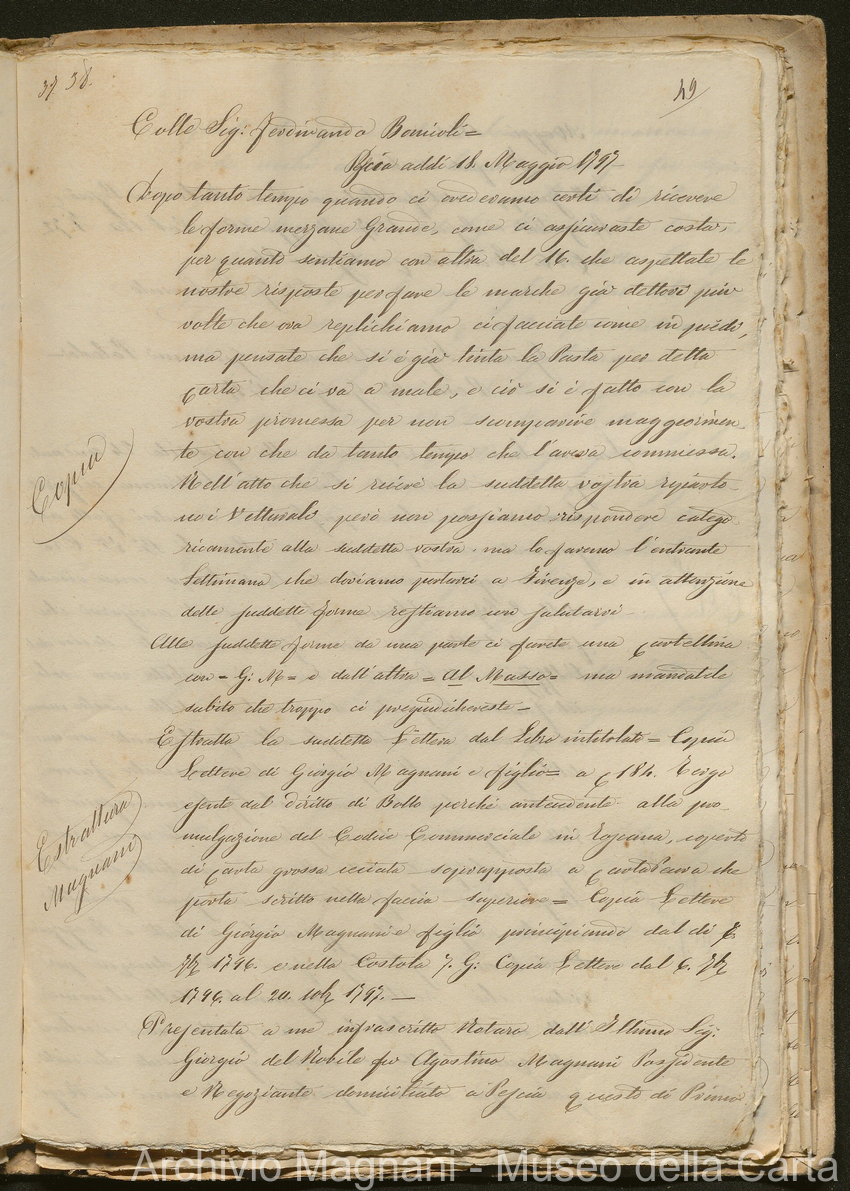 37. 38.
49
Colle Sig: Ferdinando Bonicoli=
Pescia addì 18. Maggio 1797
Dopo tanto tempo quando ci credevamo certi di ricevere
le forme mezzane Grande, come ci assicuraste costà,
per quanto sentiamo con altra del 16. che aspettate le
nostre risposte per fare le marche già dettevi più
volte che ora replichiamo ci facciate come in piedi,
ma pensate che si è già tinta la Pasta per detta
Carta che ci va a male, e ciò si è fatto con la
vostra promessa per non scomparire maggiormen-
te con che da tanto tempo che l'aveva commessa.
Nell'atto che si riceve la suddetta vostra reparto-
no i Vetturali però non possiamo rispondere catego
ricamente alla suddetta vostra ma lo faremo l'entrante
Settimana che doviamo portarci a Firenze, e in attenzione
delle suddette forme restiamo con salutarvi
Alle suddette forme da una parte ci farete una Cartellina
con = G: M = e dall'altra = Al Masso = ma mandatele
subito che troppo ci pregiudichereste -
Copia
Estratta la suddetta Lettera dal Libro intitolato = Copia
Lettere di Giorgio Magnani e figlio = a C 184. Tergo
esente dal diritto di Bollo perchè antecedente alla pro-
mulgazione del Codice Commerciale in Toscana, coperto
di Carta grossa sopraposta a Cartapecora che
porta scritto nella faccia superiore = Copia Lettere
di Giorgio Magnani e figlio principiando dal dì 6.
7bre 1796. e nella Costola 7. G: Copia Lettere dal 6. 7bre
1796. al 20. 10bre 1797. —
Estrattura
Magnani
Presentata a me infrascritto Notaro dall'Illmo Sig:
Giorgio del Nobile fu Agostino Magnani Possidente
e Negoziante domiciliato a Pescia questo dì Primo
Archivio Magnani - Museo della Carta